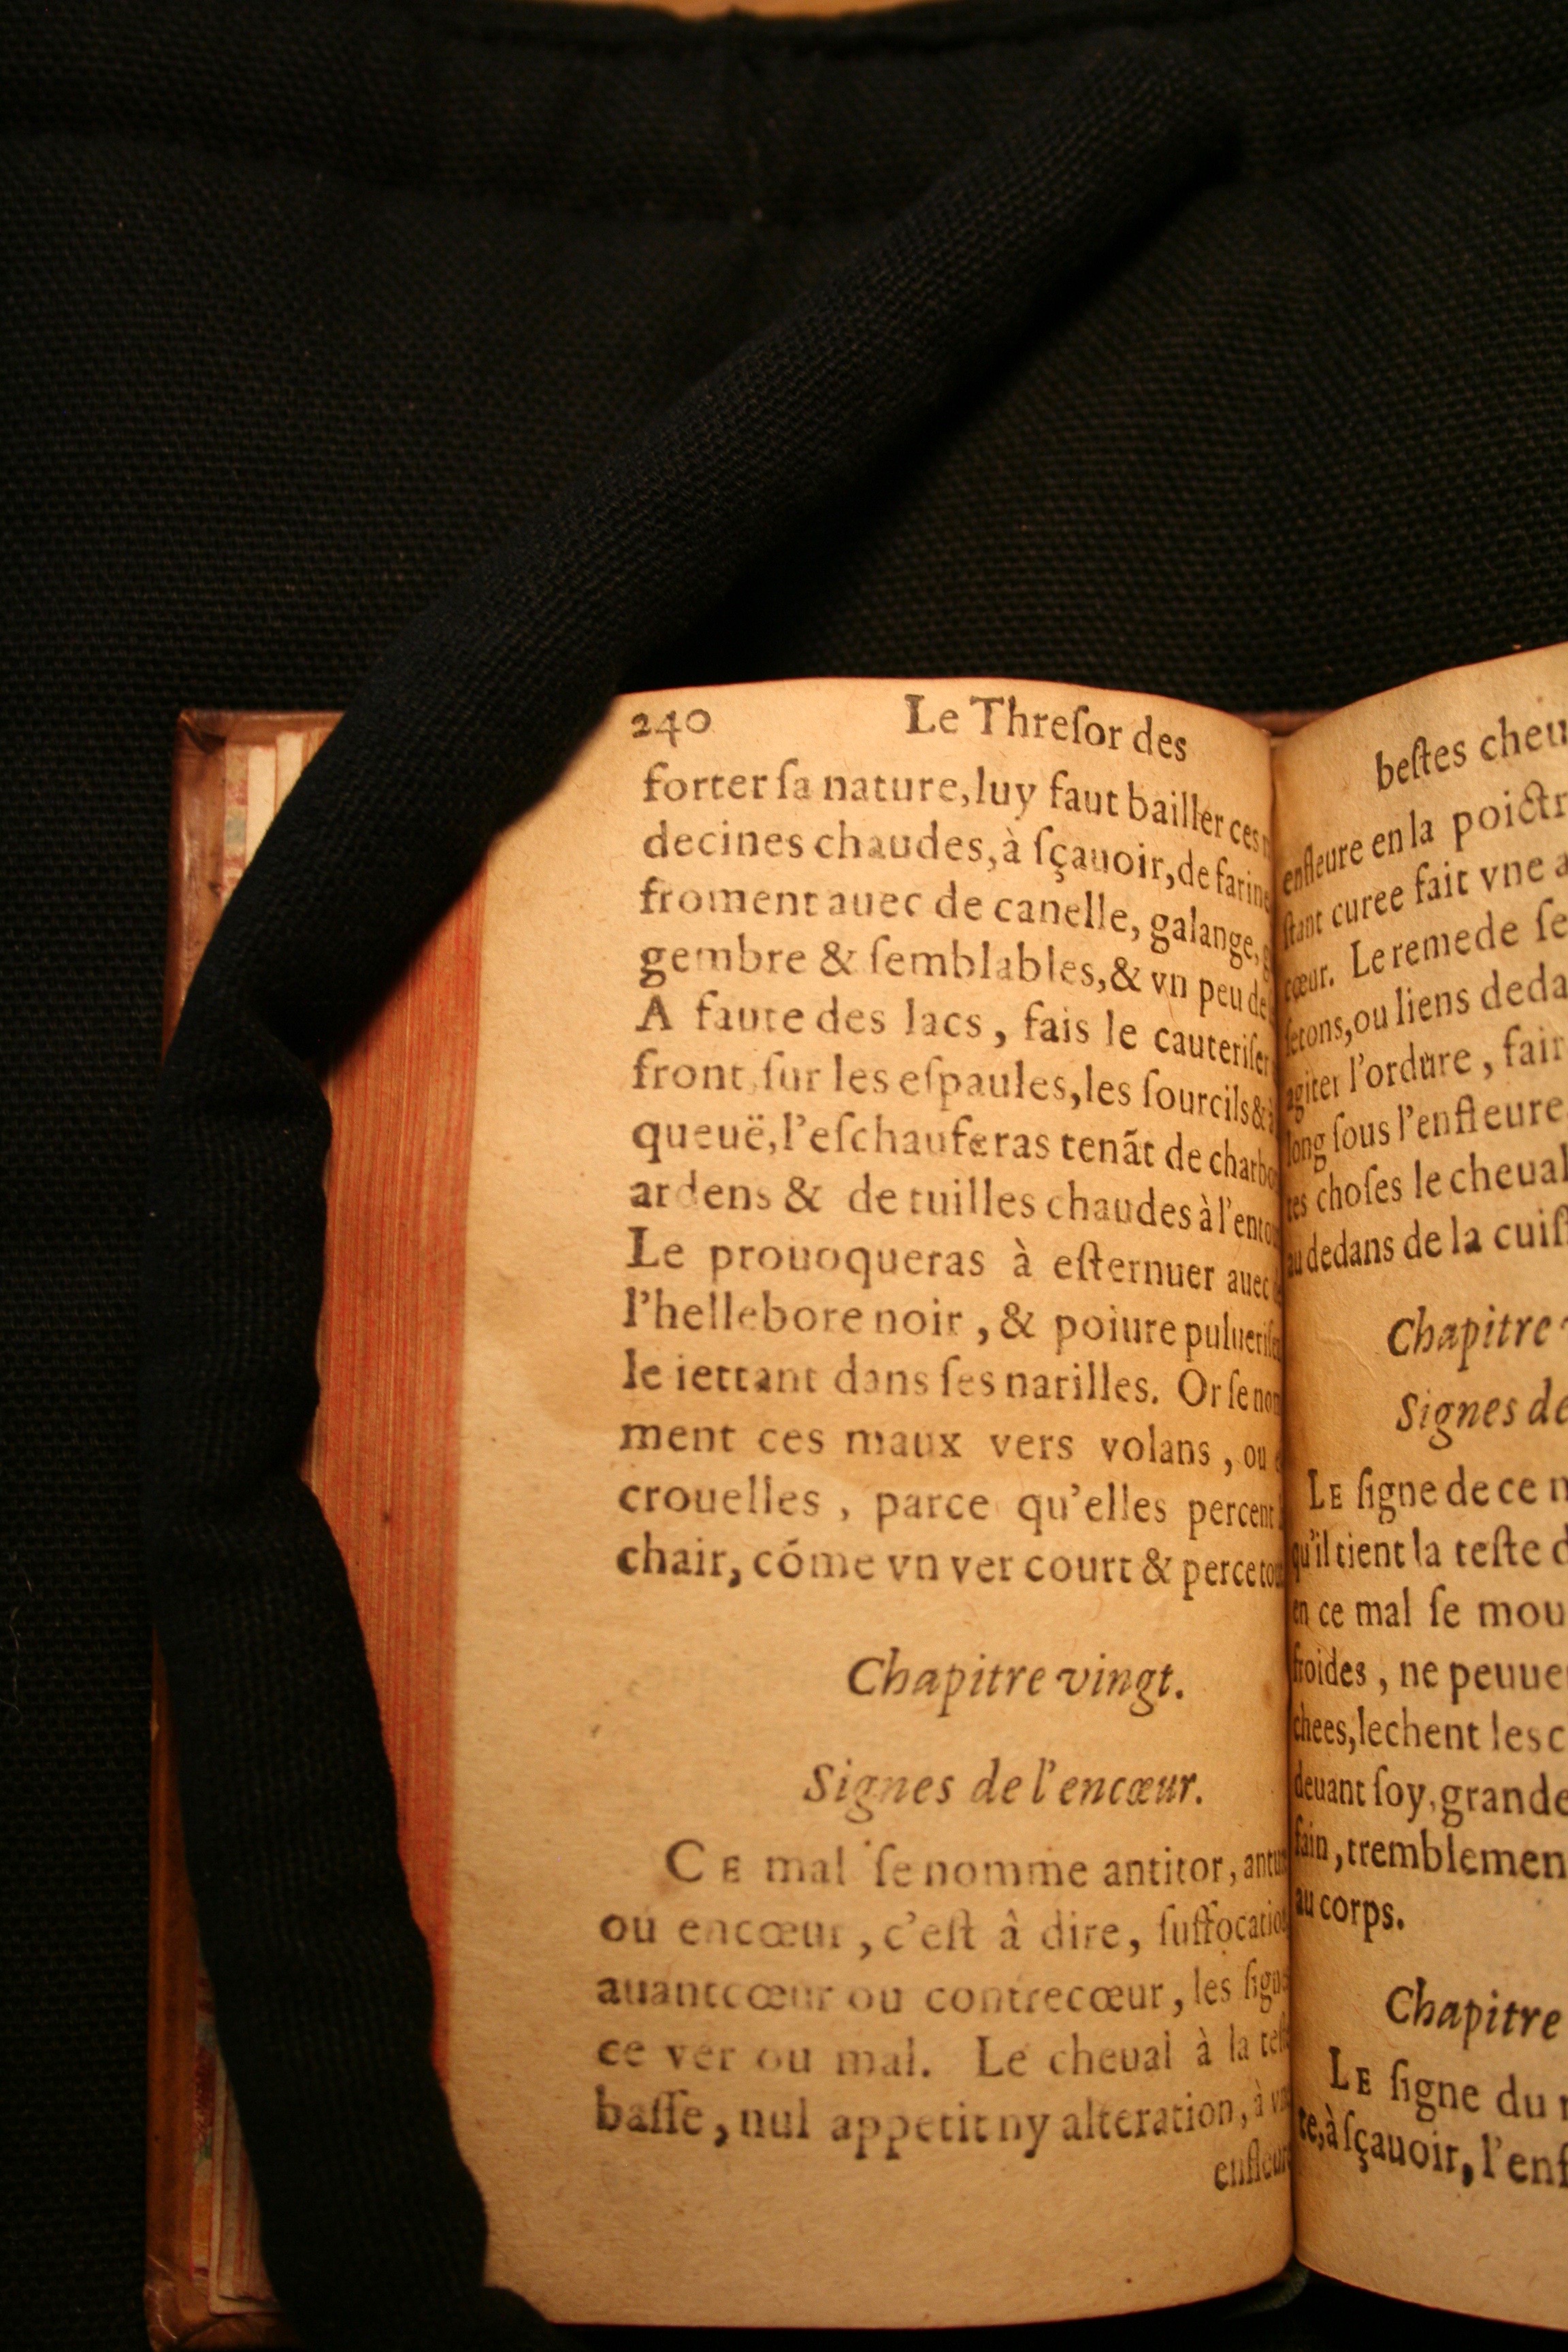 240 Le Threſor des
forter ſa nature, luy faut bailler ces
decines chaudes, à ſçauoir, de farine
froment auec de canelle, galange,
gembre & ſemblables, & vn peu de
A faute des lacs, fais le cauteriſer
front ſur les eſpaules, les ſourcils &
queuë, l'eſchauferas tenãt de charbo
ardens & de tuilles chaudes à l'ento
Le prouoqueras à eſternuer auec
l'hellebore noir, & poiure pulueriſe
le iettant dans ſes narilles. Or ſe nom
ment ces maux vers volans, ou
crouelles, parce qu'elles percent
chair, cóme vn ver court & perce tou
Chapitre vingt.
Signes de l'encœur.
CE mal ſe nomme antitor, antu
ou encœur, c'eſt â dire, ſuffocatio
auantcœur ou contrecœur, les ſigne
ce ver ou mal. Le cheual à la teſt
baſſe, nul appetit ny alteration, à
enfleur
beſtes cheu
enfleure en la poictr
ſtant curee fait vne a
cœur. Le remede ſe
ſetons, ou liens deda
agiter l'ordure, fair
long ſous l'enfleure
tes choſes le cheual
au dedans de la cuiſ
Chapitre
Signes de
LE ſigne de ce m
qu'il tient la teſte
en ce mal ſe mou
froides, ne peuue
chees, lechent les c
deuant ſoy, grande
fain, tremblemen
au corps.
Chapitre
LE ſigne du
te, à ſçauoir, l'enf